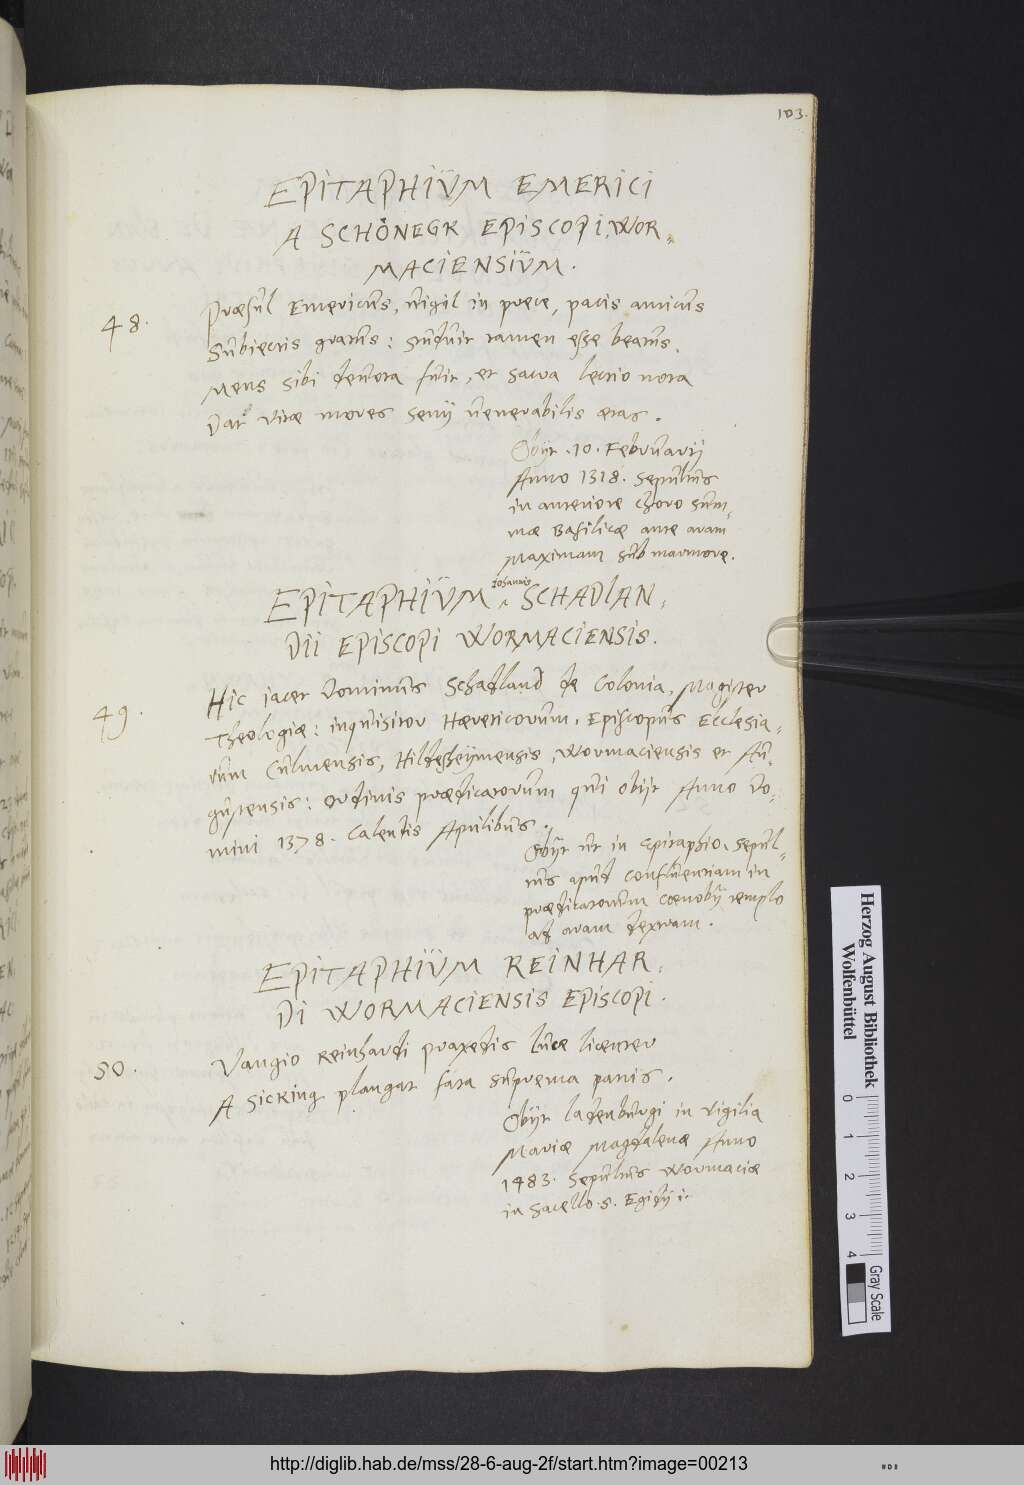 103.
EPITAPHIŬM EMERICI
A SCHÖNEGK EPISCOPI WOR=
MACIENSIŬM.
48.
Præsŭl Emericŭs, vigil in prece, pacis amicŭs
Sŭbiectis gratŭs: stŭdŭit tamen esse beatŭs.
Mens sibi devota fŭit, et sacra lectio nota
Dat vitæ mores senij venerabilis ætas.
Obijt .10. Febrŭarij
Anno 1318. Sepŭltŭs
in anteriore choro sŭm=
mæ Basilicæ ante aram
Maximam sŭb marmore.
EPITAPHIŬM Iohannis SCHADLAN=
DII EPISCOPI WORMACIENSIS.
49.
Hic iacet Dominŭs Schadland de Colonia, Magister
Theologiæ: inqŭisitor Hæreticorŭm, Episcopŭs Ecclesia=
rŭm Cŭlmensis, Hildesheymensis, Wormaciensis et Aŭ=
gŭstensis: ordinis prædicatorŭm qŭi obijt Anno Do=
mini 1378. Calendis Aprilibŭs.
Obijt ŭt in Epitaphio, sepŭl=
tŭs apŭd Conflŭentiam in
prædicatorŭm cœnobij templo
ad aram dextram.
EPITAPHIŬM REINHAR=
DI WORMACIENSIS EPISCOPI.
50.
Vangio Reinhardi praxedis lŭce licenter
A Sicking plangat fata sŭprema patris.
Obijt ladenbŭrgi in vigilia
Mariæ Magdalenæ Anno
1483. Sepŭltŭs Wormaciæ
in sacello .S. Egidij
Herzog August Bibliothek
Wolfenbüttel
0 1 2 3 4
Gray Scale
http://diglib.hab.de/mss/28-6-aug-2f/start.htm?image=00213